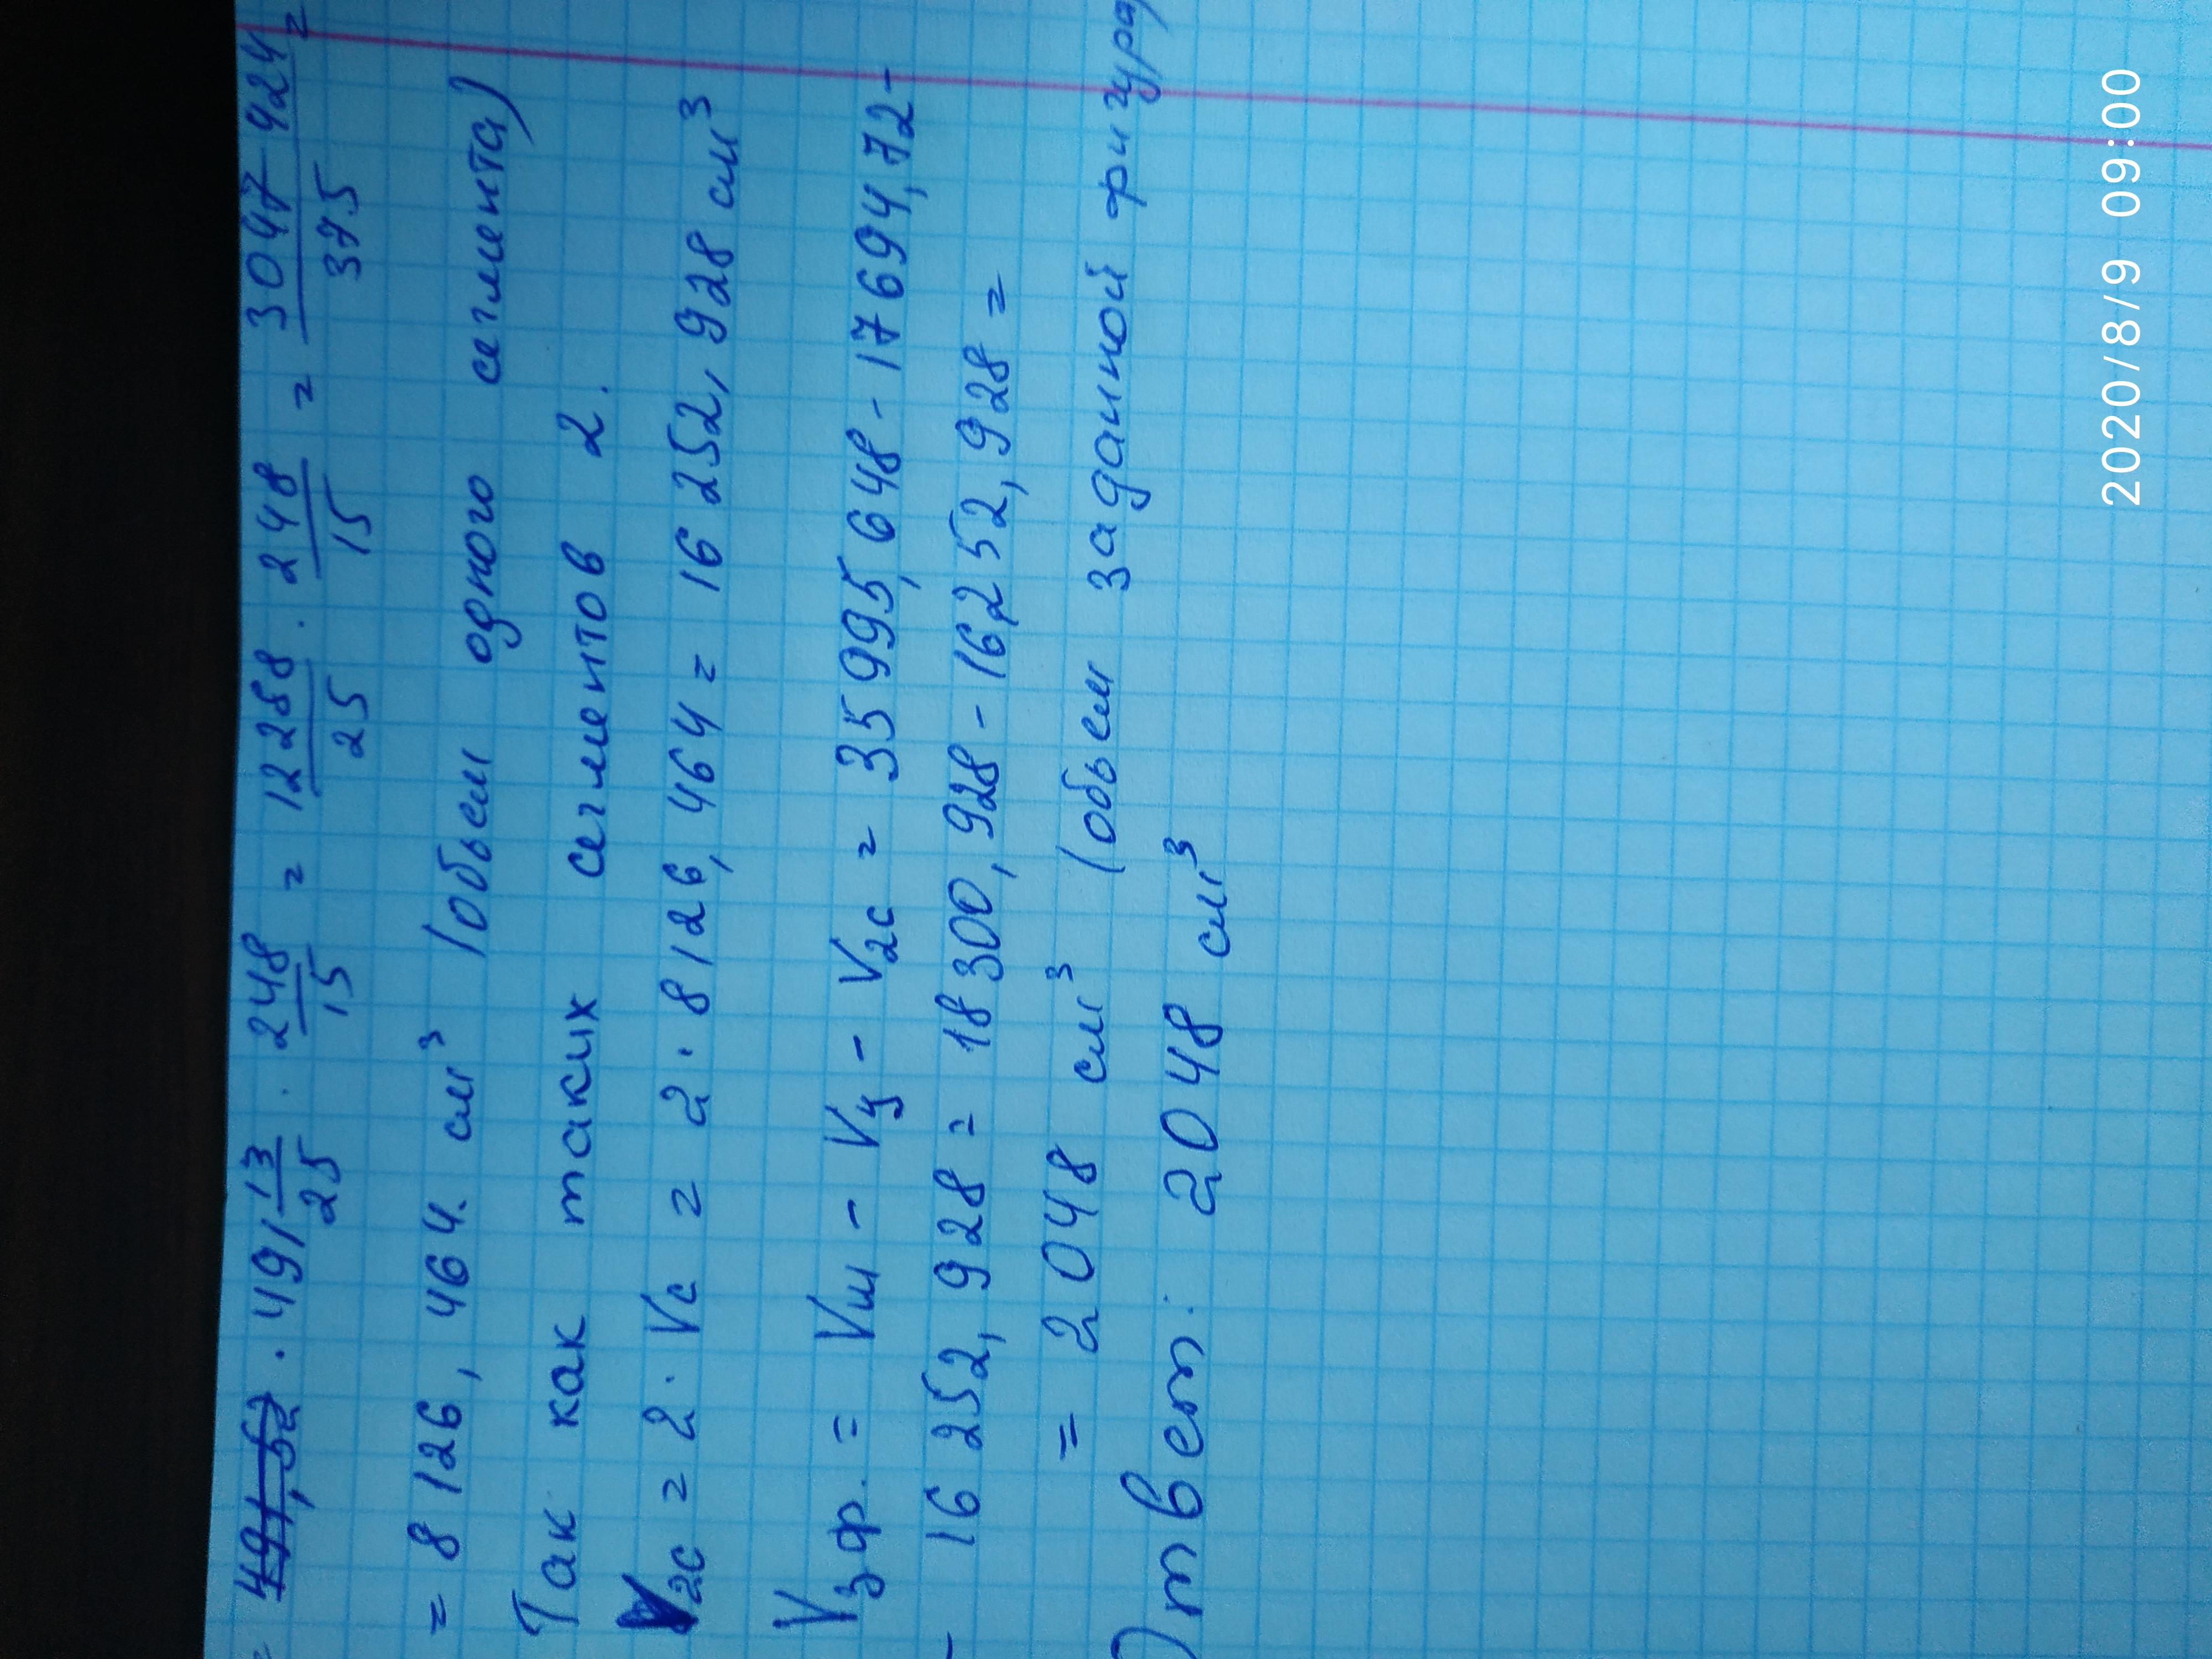 = 491,52 · 491 13/25 · 248/15 = 12288/25 · 248/15 = 3047424/375 =
= 8126,464 см³ (обьем одного сегмента)
Так как таких сегментов 2.
V2с = 2 · Vс = 2 · 8126,464 = 16252,928 см³
Vзф. = Vш - Vц - V2с = 35995,648 - 17694,72 -
- 16252,928 = 18300,928 - 16252,928 =
= 2048 см³ (обьем заданной фигуры)
Ответ: 2048 см³
2020/8/9 09:00